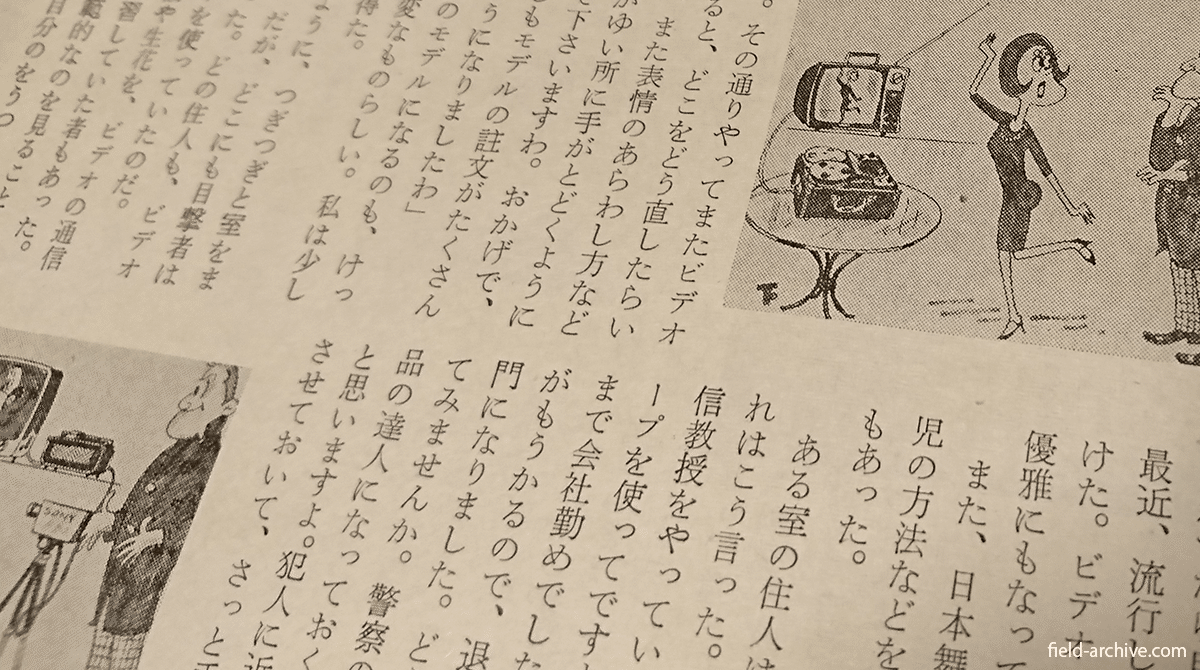 。その通りやってまたビデオ
ると、どこをどう直したらい
また表情のあらわし方など
がゆい所に手がとどくように
て下さいますわ。おかげで、
もモデルの註文がたくさん
うになりましたわ」
のモデルになるのも、けっ
変なものらしい。私は少し
得た。
ように、つぎつぎと室をま
だが、どこにも目撃者は
た。どの住人も、ビデオ
を使っていたのだ。
や生花を、ビデオの通信
習していた者もあった。
範的なのを見ること
自分のをうつ
最近、流行し
けた。ビデオ
優雅にもなっ
また、日本舞
児の方法などを
もあった。
ある室の住人は
れはこう言った。
信教授をやってい
ープを使ってです
まで会社勤めでした
がもうかるので、退
門になりました。ど
てみませんか。警察の
品の達人になっておく
と思いますよ。犯人に近
させておいて、さっと
SONY
field-archive.com